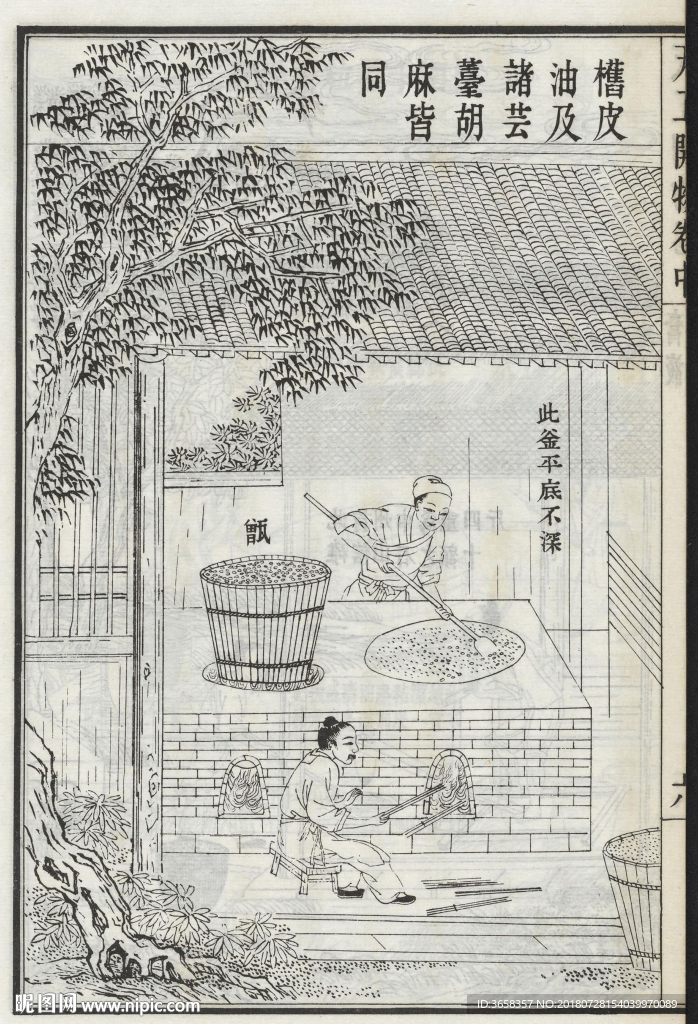 桕皮
油及
諸芸
薹胡
麻皆
同
此釜平底不深
甑
天工開物卷中
六
昵图网 www.nipic.com
ID:3658357 NO:20180728154039970089